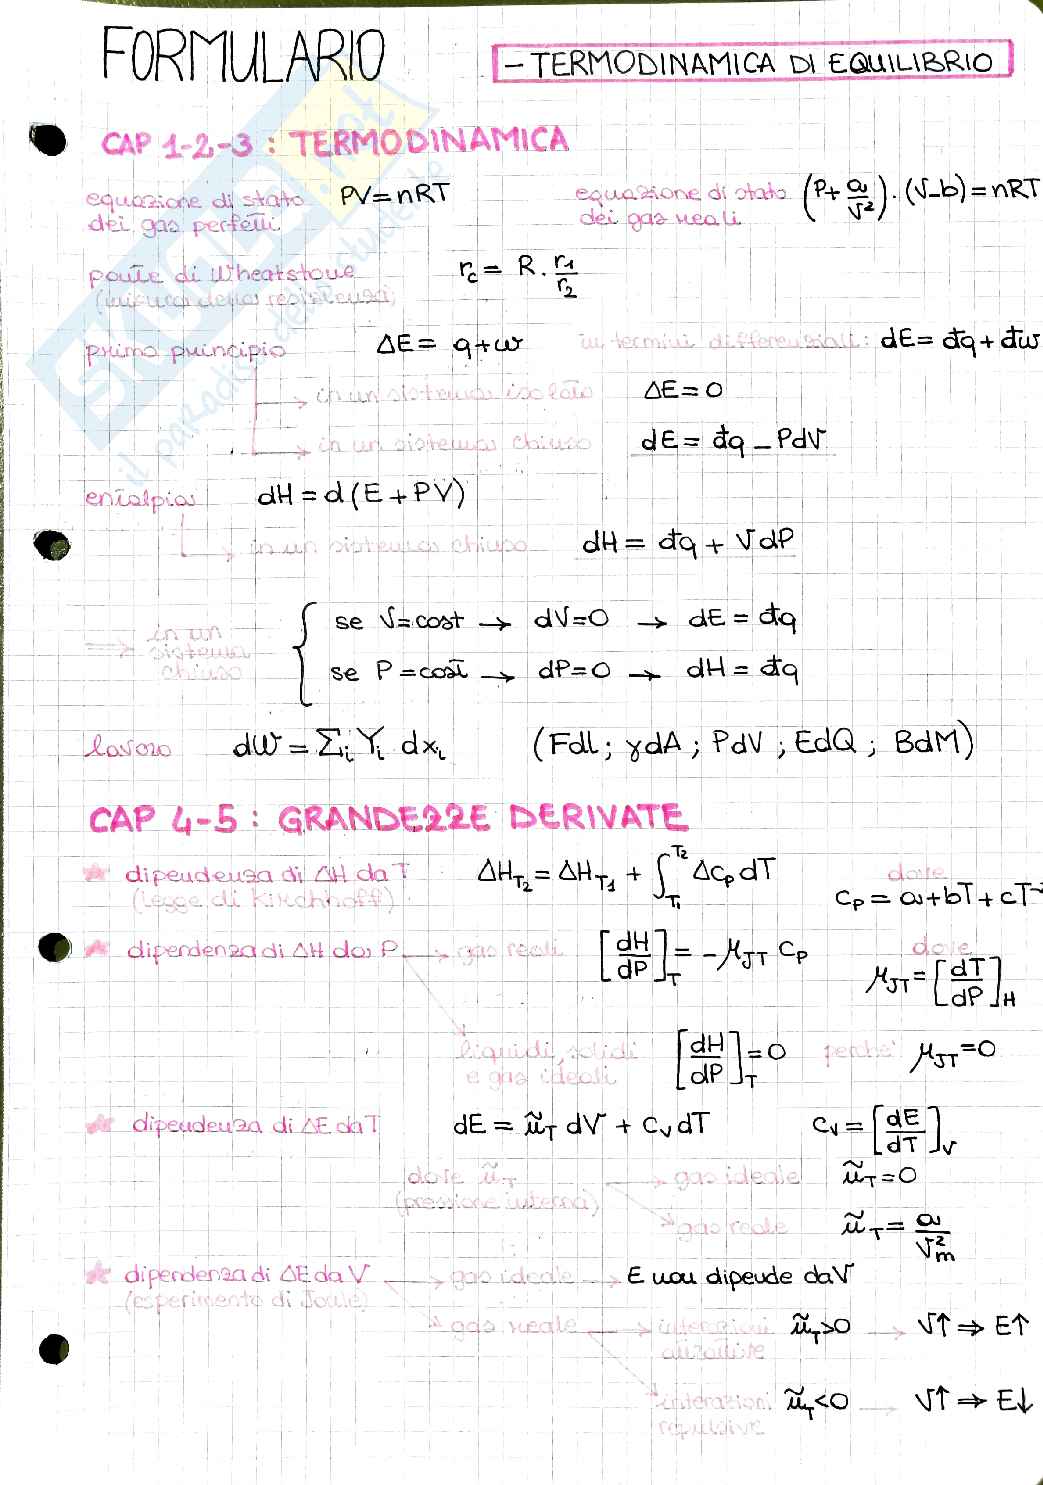 FORMULARIO
- TERMODINAMICA DI EQUILIBRIO
CAP 1-2-3 : TERMODINAMICA
equazione di stato dei gas perfetti PV = nRT
equazione di stato dei gas reali (P + a/V²) · (V - b) = nRT
ponte di Wheatstone (misura della resistenza) rc = R · r1/r2
primo principio ΔE = q + w in termini differenziali: dE = đq + đw
→ in un sistema isolato ΔE = 0
→ in un sistema chiuso dE = đq - PdV
entalpia dH = d(E + PV)
→ in un sistema chiuso dH = đq + VdP
⇒ in un sistema chiuso { se V = cost → dV = 0 → dE = đq
se P = cost → dP = 0 → dH = đq
lavoro dW = Σi Yi dxi (Fdl ; γdA ; PdV ; EdQ ; BdM)
CAP 4-5 : GRANDEZZE DERIVATE
★ dipendenza di ΔH da T (legge di Kirchhoff) ΔH_T2 = ΔH_T1 + ∫_T1^T2 Δcp dT dove cp = a + bT + cT⁻
★ dipendenza di ΔH da P → gas reali [dH/dP]_T = -μ_JT cp dove μ_JT = [dT/dP]_H
→ liquidi, solidi e gas ideali [dH/dP]_T = 0 perché μ_JT = 0
★ dipendenza di ΔE da T dE = ũ_T dV + cv dT cv = [dE/dT]_V
dove ũ_T (pressione interna) → gas ideale ũ_T = 0
→ gas reale ũ_T = a/V²m
★ dipendenza di ΔE da V (esperimento di Joule) → gas ideale → E non dipende da V
→ gas reale → interazioni attrattive ũ_T > 0 → V↑ ⇒ E↑
→ interazioni repulsive ũ_T < 0 → V↑ ⇒ E↓
SKUOLA.net
il paradiso dello studente